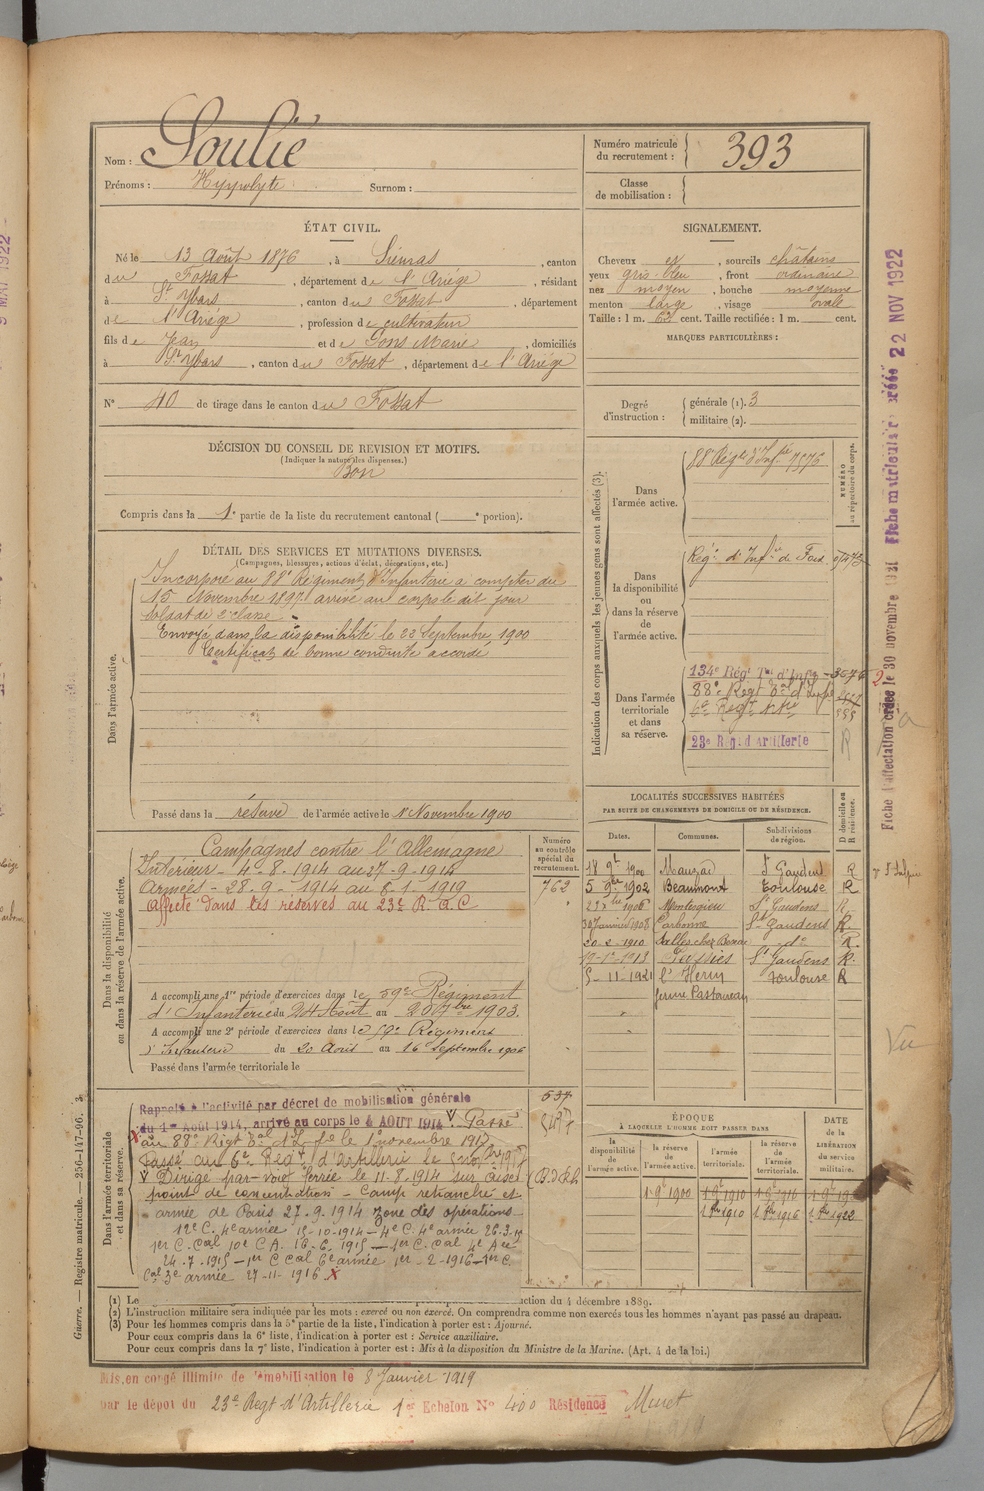 Nom : Soulié
Prénoms : Hyppolyte Surnom :
Numéro matricule du recrutement : 393
Classe de mobilisation :
ÉTAT CIVIL.
Né le 13 Août 1876, à Sieuras, canton
du Fossat, département de l'Ariège, résidant
à St Ybars, canton du Fossat, département
de l'Ariège, profession de cultivateur
fils de Jean et de Gons Marie, domiciliés
à St Ybars, canton du Fossat, département de l'Ariège
N° 40 de tirage dans le canton du Fossat
SIGNALEMENT.
Cheveux et, sourcils châtains
yeux gris-bleu, front ordinaire
nez moyen, bouche moyenne
menton large, visage ovale
Taille : 1 m. 62 cent. Taille rectifiée : 1 m. cent.
MARQUES PARTICULIÈRES :
Degré d'instruction : générale (1). 3
militaire (2).
DÉCISION DU CONSEIL DE REVISION ET MOTIFS.
(Indiquer la nature des dispenses.)
Bon
Compris dans la 1e partie de la liste du recrutement cantonal ( e portion).
DÉTAIL DES SERVICES ET MUTATIONS DIVERSES.
(Campagnes, blessures, actions d'éclat, décorations, etc.)
Dans l'armée active.
Incorporé au 88e Régiment d'Infanterie à compter du
15 Novembre 1897 arrivé au corps le dit jour
Soldat de 2e classe
Envoyé dans la disponibilité le 22 Septembre 1900
Certificat de bonne conduite accordé
Passé dans la réserve de l'armée active le 1er Novembre 1900
Indication des corps auxquels les jeunes gens sont affectés (3).
NUMÉRO au répertoire du corps.
Dans l'armée active.
88e Régt d'Infie 7576
Dans la disponibilité ou dans la réserve de l'armée active.
Rég. d'Infie de Foix
Dans l'armée territoriale et dans sa réserve.
134e Régt Tal d'Infie 3076
88e Regt Tal d'Infie
6e Regt
23e Rég. d'Artillerie
R
LOCALITÉS SUCCESSIVES HABITÉES
PAR SUITE DE CHANGEMENTS DE DOMICILE OU DE RÉSIDENCE.
D domicile ou R résidence.
Dates. Communes. Subdivisions de région.
18 9e 1900 Mauzac St Gaudens R
5 9bre 1902 Beaumont Toulouse R
1906 Montesquieu St Gaudens R
30 Janvier 1908 Carbonne St Gaudens R
20-2-1910 do R
1913 St Gaudens R
5-11-1921 l'Herm Toulouse R
ferme Castaureau
Dans la disponibilité ou dans la réserve de l'armée active.
Campagnes contre l'Allemagne
Intérieur - 4-8-1914 au 27-9-1914
Armées - 28-9-1914 au 8-1-1919
Affecté dans les réserves au 23e R. A. C
Numéro au contrôle spécial du recrutement.
762
A accompli une 1re période d'exercices dans le 59e Régiment
d'Infanterie du 24 Août au 20 7bre 1903.
A accompli une 2e période d'exercices dans le 59e Régiment
d'Infanterie du 20 Août au 16 Septembre 1906
Passé dans l'armée territoriale le
Dans l'armée territoriale et dans sa réserve.
Rappelé à l'activité par décret de mobilisation générale
du 1er Août 1914, arrivé au corps le 4 AOUT 1914 V Passé
au 88e Régt Tal d'Infie le 1 novembre 1917
Passé au 6e Regt d'Artillerie le
V Dirigé par voie ferrée le 11-8-1914 sur
point de concentration - Camp retranché et
armée de Paris 27-9-1914 zone des opérations
12e C. 4e armée 15-10-1914 - 4e C. 4e armée 26-3-15
1er C. Cal 10e C A. 16-6-1915 - 1er C. Cal 4e Aée
24-7-1915 - 1er C Cal 6e armée 1er-2-1916 - 1er C.
Cal 3e armée 27-11-1916 X
637
ÉPOQUE
À LAQUELLE L'HOMME DOIT PASSER DANS
la disponibilité de l'armée active. la réserve de l'armée active. l'armée territoriale. la réserve de l'armée territoriale.
DATE de la LIBÉRATION du service militaire.
1 9e 1900 1 9e 1910 1 9e 1916
1 8bre 1910 1 8bre 1916 1 8bre 1922
(1) Le ction du 4 décembre 1889.
(2) L'instruction militaire sera indiquée par les mots : exercé ou non exercé. On comprendra comme non exercés tous les hommes n'ayant pas passé au drapeau.
(3) Pour les hommes compris dans la 5e partie de la liste, l'indication à porter est : Ajourné.
Pour ceux compris dans la 6e liste, l'indication à porter est : Service auxiliaire.
Pour ceux compris dans la 7e liste, l'indication à porter est : Mis à la disposition du Ministre de la Marine. (Art. 4 de la loi.)
Mis en congé illimité de démobilisation le 8 Janvier 1919
par le dépôt du 23e Regt d'Artillerie 1er Echelon N° 400 Résidence Muret
Guerre. — Registre matricule. — 256-147-96.
Fiche d'affectation créée le 30 novembre 1921 Fiche matriculaire créée 22 NOV 1922
Vu